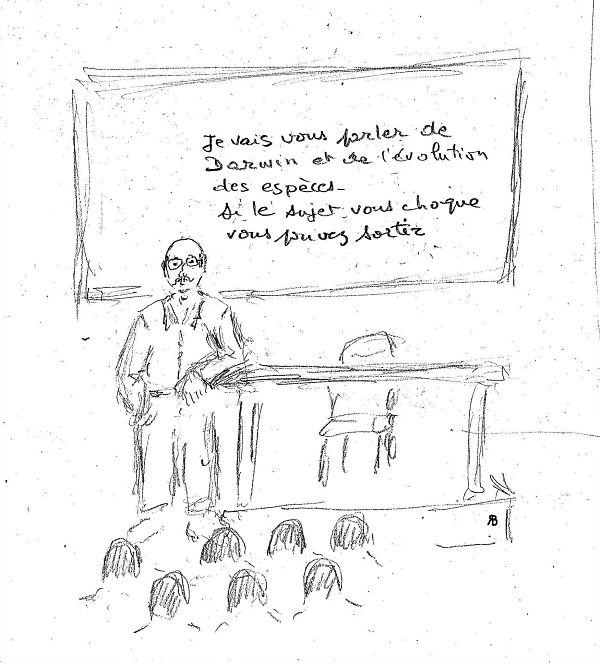 Je vais vous parler de
Darwin et de l'évolution
des espèces_
Si le sujet vous choque
vous pouvez sortir
AB